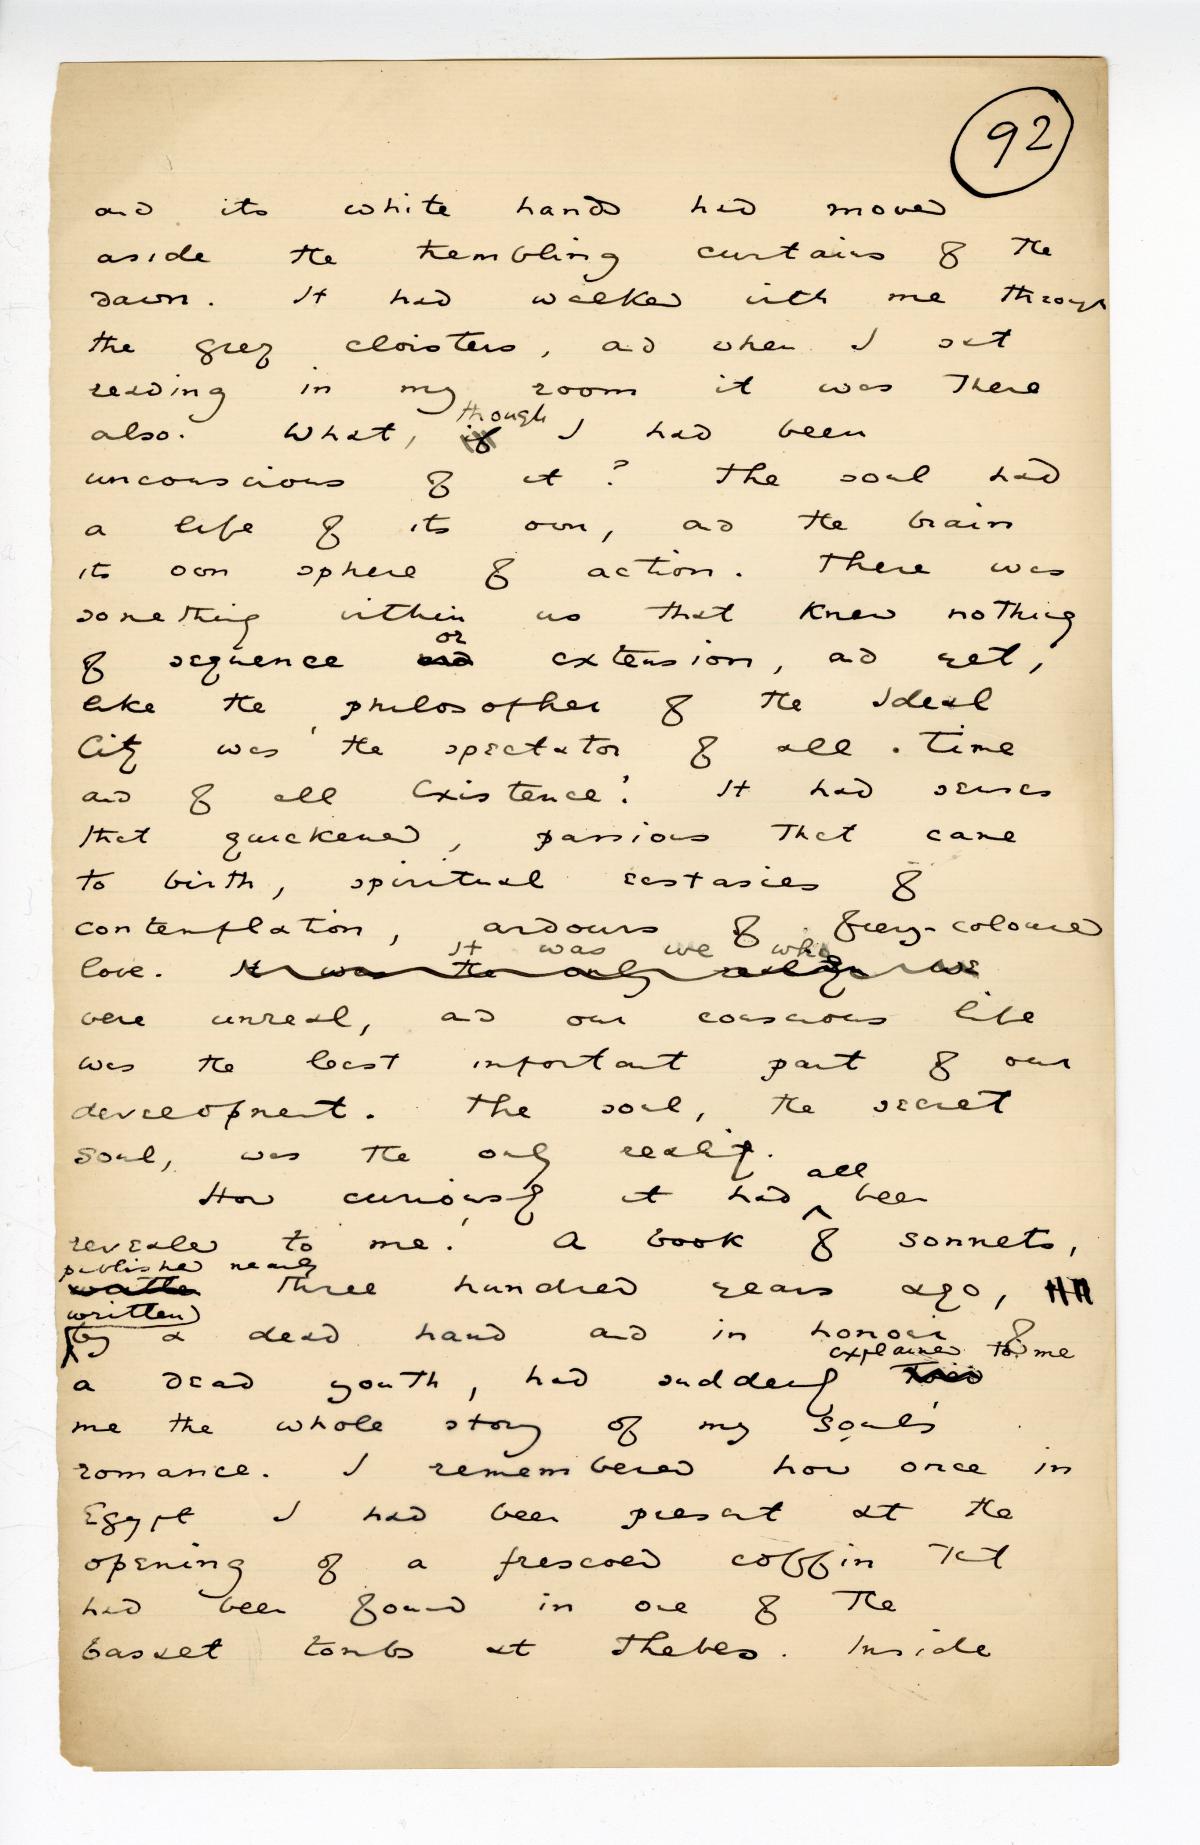 92
and its white hands had moved
aside the trembling curtains of the
dawn. It had walked with me through
the grey cloisters, and when I sat
reading in my room it was there
though
also. What, if I had been
unconscious of it? The soul had
a life of its own, and the brain
its own sphere of action. There was
something within us that knew nothing
or
of sequence and extension, and yet,
like the philosopher of the Ideal
City was the spectator of all time
and of all existence. It had senses
that quickened, passions that came
to birth, spiritual ecstasies of
contemplation, ardours of fiery-coloured
It was we who
love. It was the only reality we
were unreal, and our conscious life
was the least important part of our
development. The soul, the secret
soul, was the only reality.
all
How curiously it had been
revealed to me! A book of sonnets,
published nearly
written three hundred years ago,
written
by a dead hand and in honour of
explained to me
a dead youth, had suddenly told
me the whole story of my soul's
romance. I remembered how once in
Egypt I had been present at the
opening of a frescoed coffin that
had been found in one of the
basalt tombs at Thebes. Inside